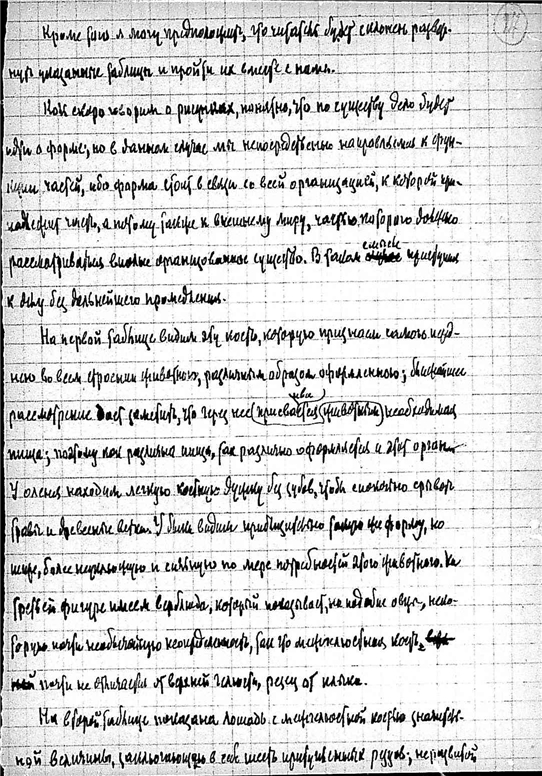 Кроме того я могу предположить, что читатель будет склонен развер-
нуть указанные таблицы и пройти их вместе с нами.
Коль скоро говорим о рисунках, понятно, что по существу дело будет
идти о форме, но в данном случае мы непосредственно направляемся к функ-
ции частей, ибо форма стоит в связи со всей организацией, к которой при-
надлежит часть, а потому также к внешнему миру, частью которого должно
рассматриваться вполне организованное существо. В таком смысле приступим
к делу без дальнейшего промедления.
На первой таблице видим эту кость, которую признаем самою перед-
нею во всем строении животного, различным образом оформленною; ближайшее
рассмотрение дает заметить, что через нее присваивается животным необходимая
пища; поэтому как различна пища, так различно оформляется и этот орган.
У оленя находим легкую костную дужку без зубов, чтобы спокойно срывать
травы и древесные ветки. У быка видим приблизительно такую же форму, но
шире, более неуклюжую и сильную по мере потребностей этого животного. На
третьей фигуре имеем верблюда, который показывает, на подобие овцы, неко-
торую почти необычайную неопределенность, так что межчелюстная кость
почти не отличается от верхней челюсти, резец от клыка.
На второй таблице показана лошадь с межчелюстной костью значитель-
ной величины, заключающею в себе шесть притупленных резцов; неразвитой